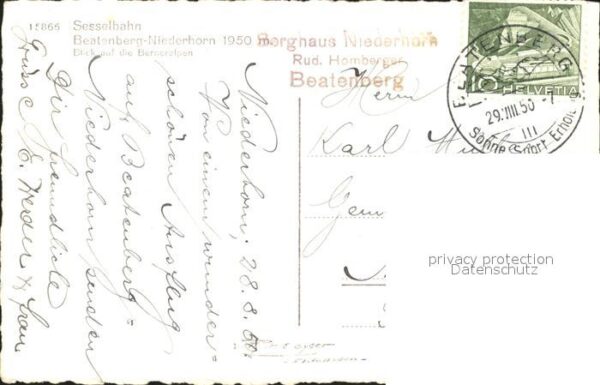 15866 Sesselbahn
Beatenberg-Niederhorn 1950 m.
Blick auf die Berneralpen
Berghaus Niederhorn
Rud. Homberger
Beatenberg
10 HELVETIA
BEATENBERG
29.VIII.50.-7
III
Sonne Sport Erholung
Niederhorn, 28.8.50.
Von einem wunder-
schönen Ausflug
auf Beatenberg-
Niederhorn senden
Dir freundliche
Grüsse E. Herder & Frau
Herrn
Karl
Gem
privacy protection
Datenschutz